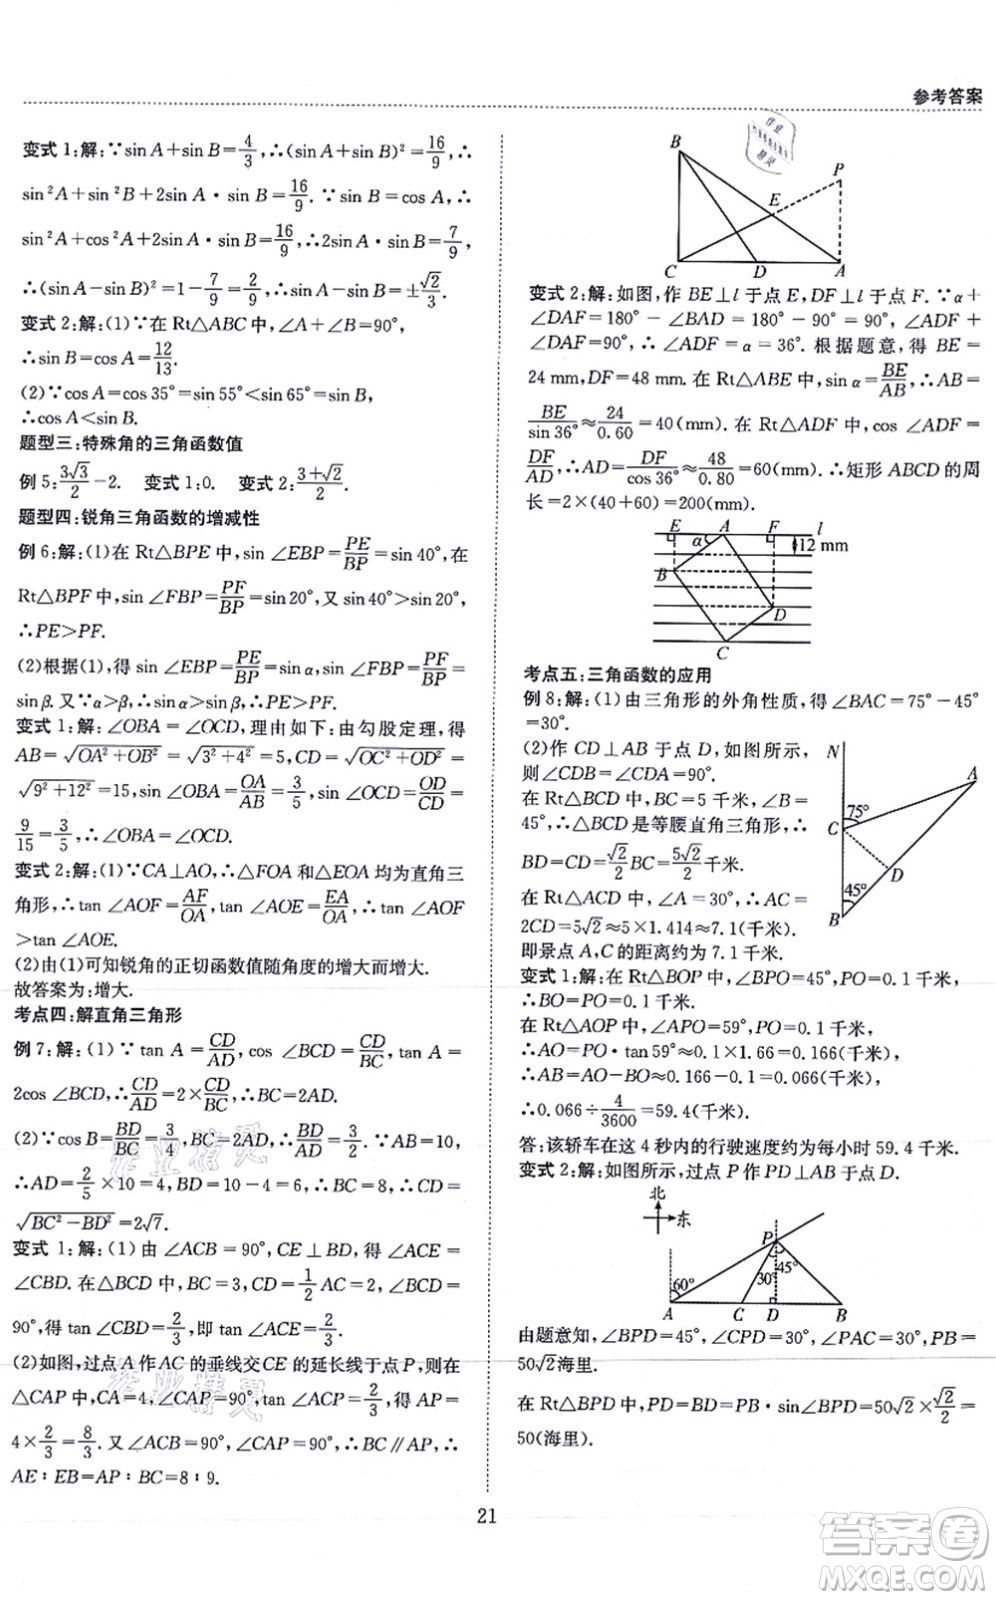 参考答案
变式 1:解:∵sin A+sin B=4/3,∴(sin A+sin B)²=16/9,∴
sin²A+sin²B+2sin A·sin B=16/9.∵sin B=cos A,∴
sin²A+cos²A+2sin A·sin B=16/9,∴2sin A·sin B=7/9,
∴(sin A-sin B)²=1-7/9=2/9,∴sin A-sin B=±√2/3.
变式 2:解:(1)∵在 Rt△ABC 中,∠A+∠B=90°,
∴sin B=12/13.
(2)∵cos A=cos 35°=sin 55°<sin 65°=sin B,
∴cos A<sin B.
题型三:特殊角的三角函数值
例 5:3√3/2-2. 变式 1:0. 变式 2:(3+√2)/2.
题型四:锐角三角函数的增减性
例 6:解:(1)在 Rt△BPE 中,sin ∠EBP=PE/BP=sin 40°,在
Rt△BPF 中,sin ∠FBP=PF/BP=sin 20°,又 sin 40°>sin 20°,
∴PE>PF.
(2)根据(1),得 sin ∠EBP=PE/BP=sin α,sin ∠FBP=PF/BP=
sin β.又∵α>β,∴sin α>sin β,∴PE>PF.
变式 1:解:∠OBA=∠OCD,理由如下:由勾股定理,得
AB=√(OA²+OB²)=√(3²+4²)=5,CD=√(OC²+OD²)=
√(9²+12²)=15,sin ∠OBA=OA/AB=3/5,sin ∠OCD=OD/CD=
9/15=3/5,∴∠OBA=∠OCD.
变式 2:解:(1)∵CA⊥AO,∴△FOA 和△EOA 均为直角三
角形,∴tan ∠AOF=AF/OA,tan ∠AOE=EA/OA,∴tan ∠AOF
>tan ∠AOE.
(2)由(1)可知锐角的正切函数值随角度的增大而增大.
故答案为:增大.
考点四:解直角三角形
例 7:解:(1)∵tan A=CD/AD,cos ∠BCD=CD/BC,tan A=
2cos ∠BCD,∴CD/AD=2×CD/BC,∴BC=2AD.
(2)∵cos B=BD/BC=3/4,BC=2AD,∴BD/AD=3/2.∵AB=10,
∴AD=2/5×10=4,BD=10-4=6,∴BC=8,∴CD=
√(BC²-BD²)=2√7.
变式 1:解:(1)由∠ACB=90°,CE⊥BD,得∠ACE=
∠CBD.在△BCD 中,BC=3,CD=1/2AC=2,∠BCD=
90°,得 tan ∠CBD=2/3,即 tan ∠ACE=2/3.
(2)如图,过点 A 作 AC 的垂线交CE 的延长线于点 P,则在
△CAP 中,CA=4,∠CAP=90°,tan ∠ACP=2/3,得 AP=
4×2/3=8/3.又∠ACB=90°,∠CAP=90°,∴BC∥AP,∴
AE∶EB=AP∶BC=8∶9.
B
P
E
C
D
A
变式 2:解:如图,作 BE⊥l 于点 E,DF⊥l 于点 F.∵α+
∠DAF=180°-∠BAD=180°-90°=90°,∠ADF+
∠DAF=90°,∴∠ADF=α=36°.根据题意,得 BE=
24 mm,DF=48 mm.在 Rt△ABE 中,sin α=BE/AB,∴AB=
BE/sin 36°≈24/0.60=40(mm).在 Rt△ADF 中,cos∠ADF=
DF/AD,∴AD=DF/cos 36°≈48/0.80=60(mm).∴矩形 ABCD 的周
长=2×(40+60)=200(mm).
E
A
F
l
α
12 mm
B
D
C
考点五:三角函数的应用
例 8:解:(1)由三角形的外角性质,得∠BAC=75°-45°
=30°.
(2)作 CD⊥AB 于点 D,如图所示,
则∠CDB=∠CDA=90°.
在 Rt△BCD 中,BC=5 千米,∠B=
45°,∴△BCD 是等腰直角三角形,∴
BD=CD=√2/2BC=5√2/2千米.
在 Rt△ACD 中,∠A=30°,∴AC=
2CD=5√2≈5×1.414≈7.1(千米).
即景点 A,C 的距离约为 7.1 千米.
N
A
75°
C
D
45°
B
变式 1:解:在 Rt△BOP 中,∠BPO=45°,PO=0.1 千米,
∴BO=PO=0.1 千米.
在 Rt△AOP 中,∠APO=59°,PO=0.1 千米,
∴AO=PO·tan 59°≈0.1×1.66=0.166(千米),
∴AB=AO-BO≈0.166-0.1=0.066(千米),
∴0.066÷4/3600=59.4(千米).
答:该轿车在这 4 秒内的行驶速度约为每小时 59.4 千米.
变式 2:解:如图所示,过点 P 作 PD⊥AB 于点 D.
北
东
P
60°
30°
45°
A
C
D
B
由题意知,∠BPD=45°,∠CPD=30°,∠PAC=30°,PB=
50√2海里.
在 Rt△BPD 中,PD=BD=PB·sin∠BPD=50√2×√2/2=
50(海里).
21
答案圈
MXQE.COM
作业精灵